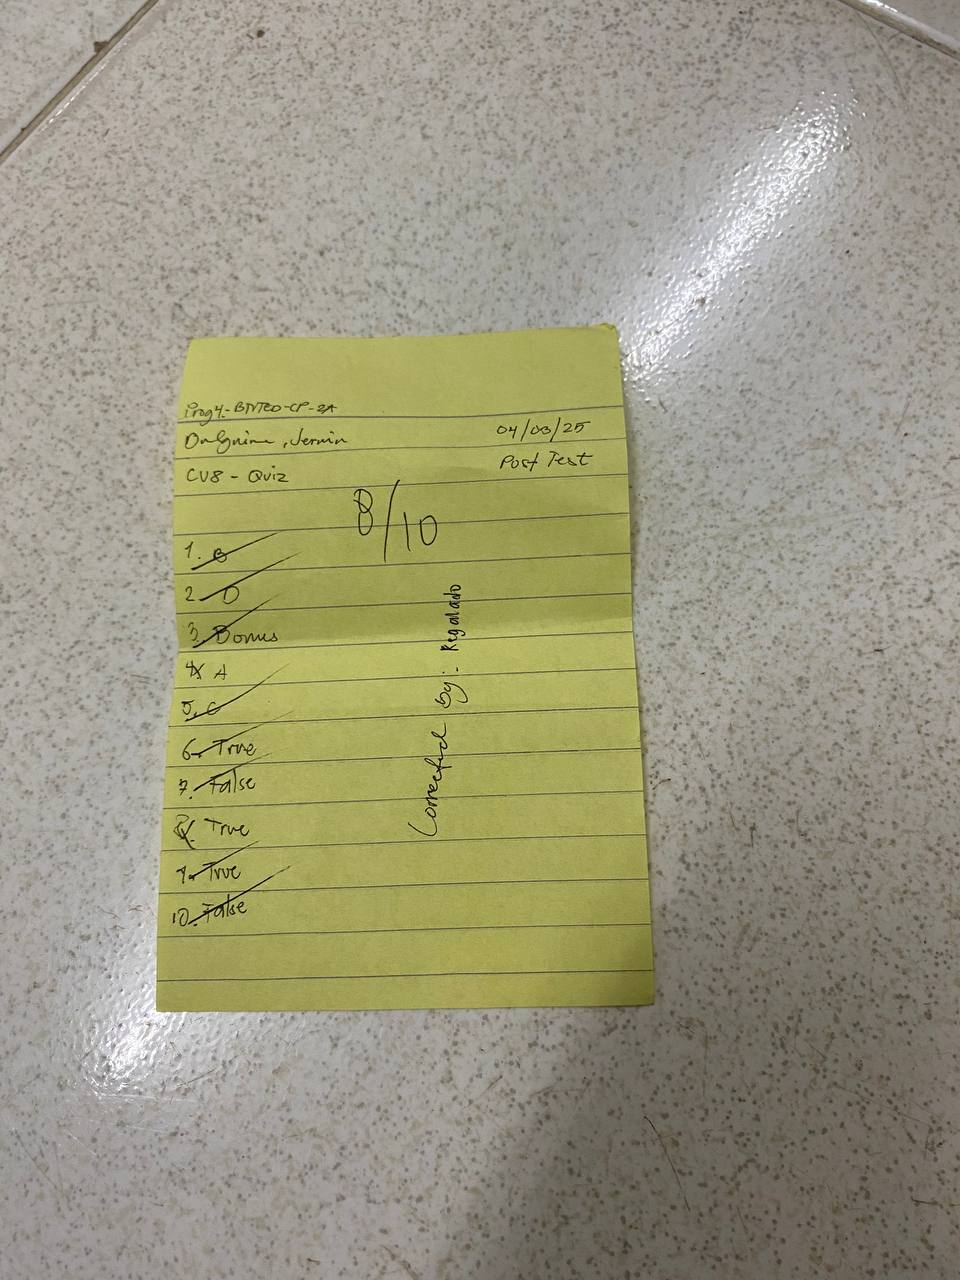 Prog4-BTVTED-CP-2A
Jerwin 04/03/25
CV8 - Quiz Post Test
8/10
1. B
2. D
3. Bonus
4. A
5. C
6. True
7. False
8. True
9. True
10. False
Corrected by: Regalado